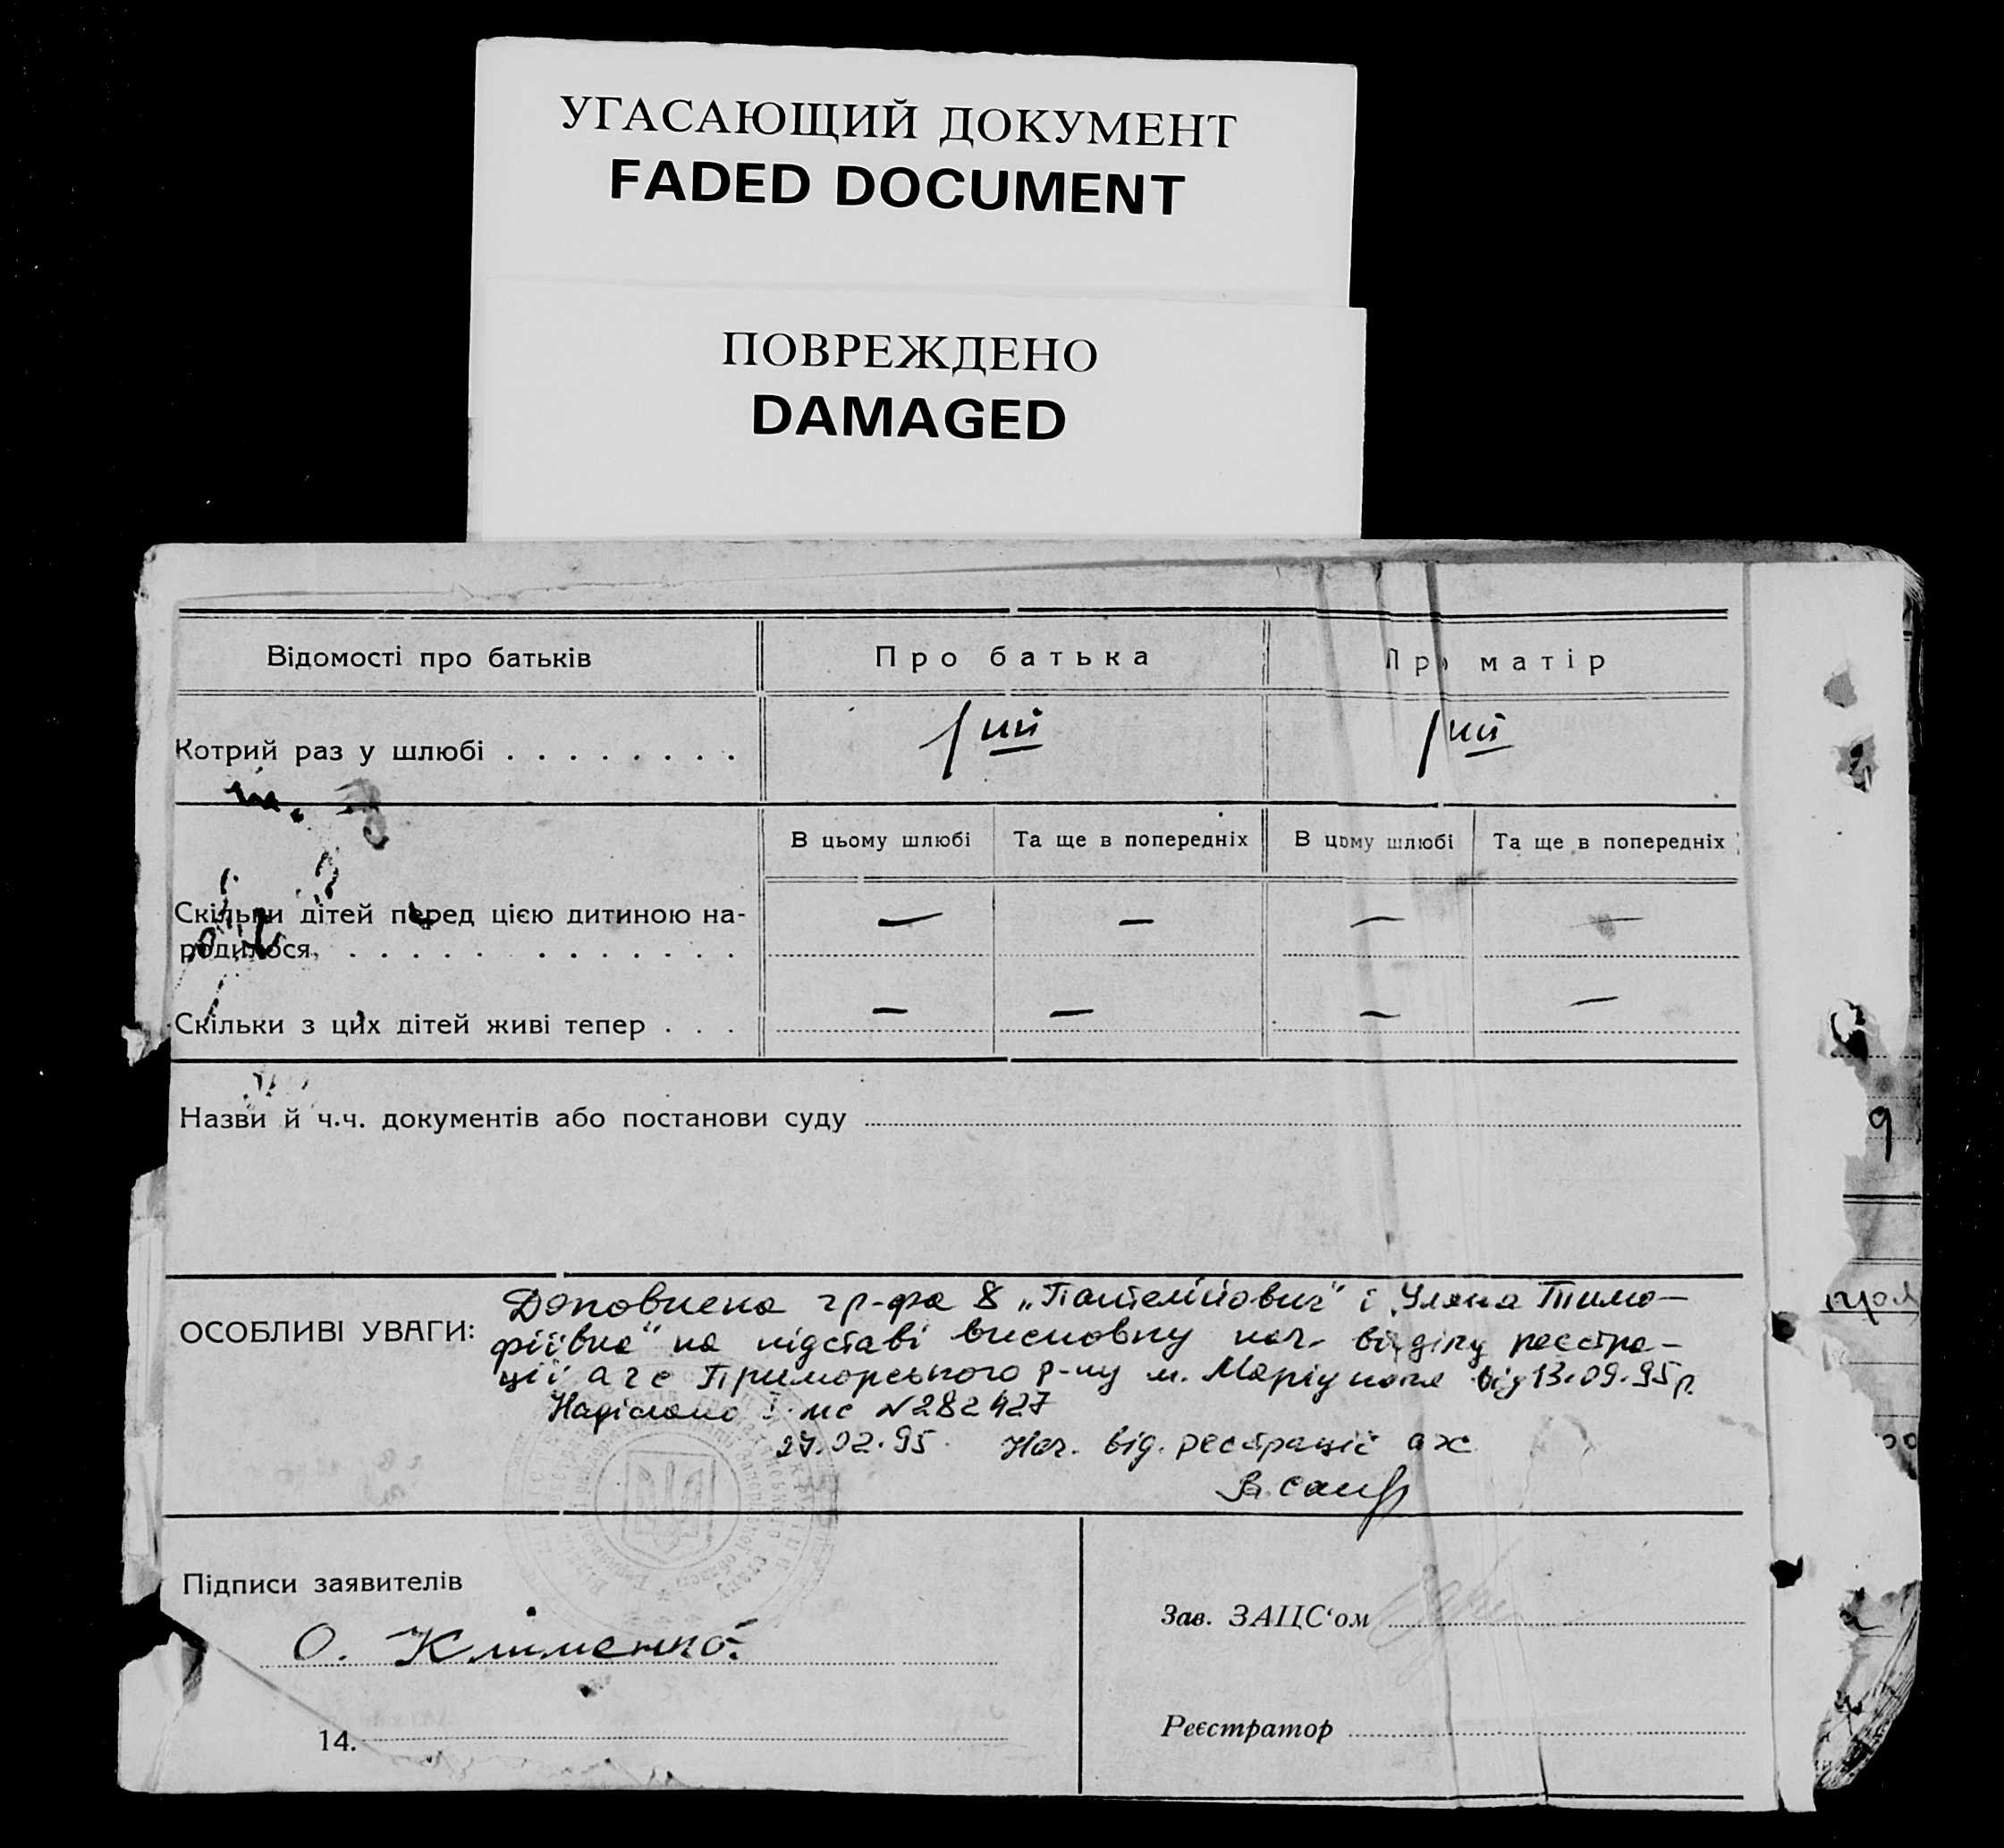 УГАСАЮЩИЙ ДОКУМЕНТ
FADED DOCUMENT
ПОВРЕЖДЕНО
DAMAGED
Відомості про батьків
Про батька
Про матір
Котрий раз у шлюбі . . . . . . . .
1ий
1ий
В цьому шлюбі
Та ще в попередніх
В цьому шлюбі
Та ще в попередніх
Скільки дітей перед цією дитиною на-
родилося. . . . . . . . . . . . .
— — — —
Скільки з цих дітей живі тепер . . .
— — — —
Назви й ч.ч. документів або постанови суду
ОСОБЛИВІ УВАГИ:
Доповнена гр-фа 8 „Пантелійович" і „Уляна Тимо-
фіївна" на підставі висновку нач. відділу реєстра-
ції агс Приморського р-ну м. Маріуполя від 13.09.95р.
Надіслано І мс №282427
27.02.95. Нач. від. реєстрації
Підписи заявителів
О. Кліменко.
14.
Зав. ЗАЦС‘ом
Реєстратор